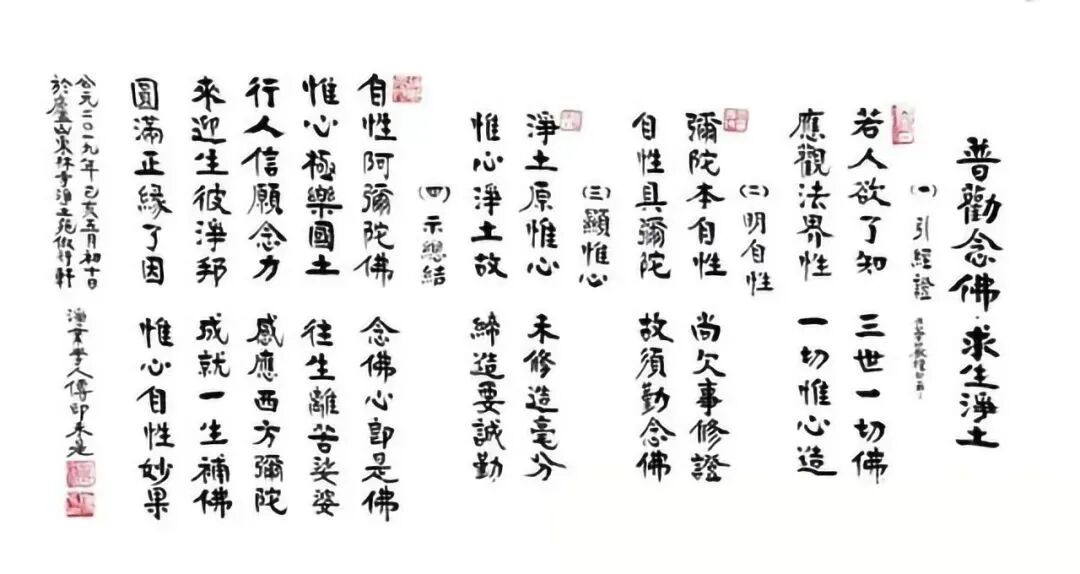 普勸念佛·求生淨土
(一)引經證
若人欲了知 三世一切佛
應觀法界性 一切惟心造
(二)明自性
彌陀本自性 尚欠事修證
自性具彌陀 故須勤念佛
(三)顯惟心
淨土原惟心 未修造毫分
惟心淨土故 締造要誠勤
(四)示總結
自性阿彌陀佛 念佛心即是佛
惟心極樂國土 往生離苦娑婆
行人信願念力 感應西方彌陀
來迎生彼淨邦 成就一生補佛
圓滿正緣了因 惟心自性妙果
公元二〇一九年己亥五月初十日
於廬山東林寺淨土苑 淨業學人傳印